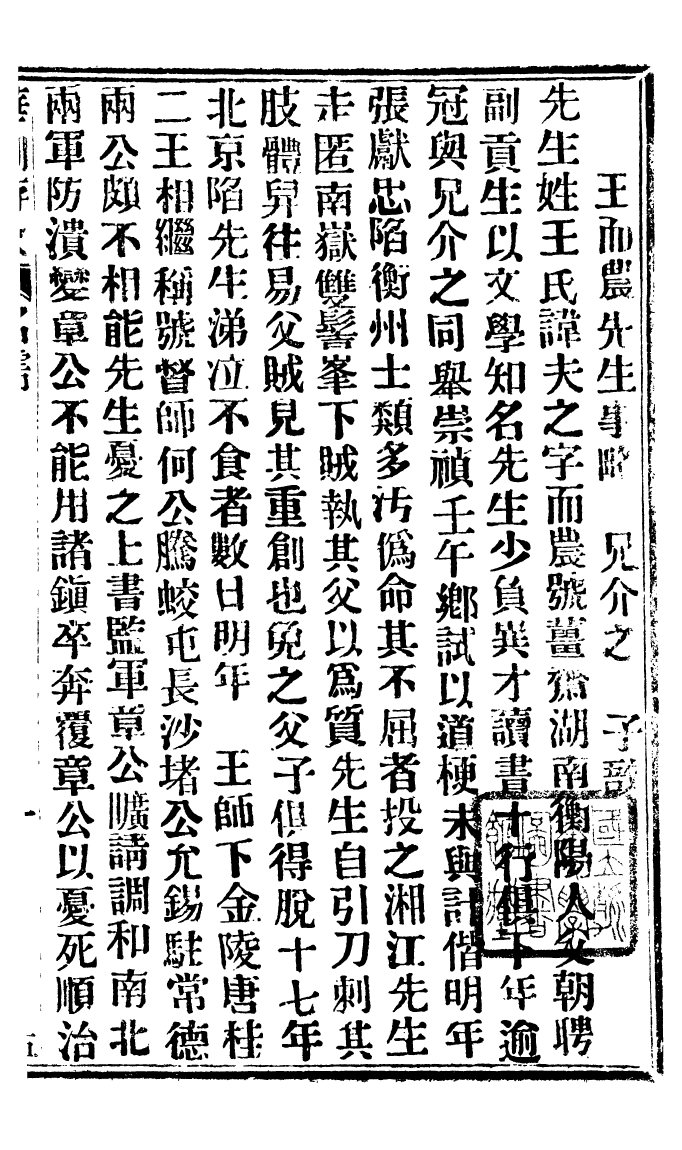 王而農先生事略　兄介之　子敔
先生姓王氏諱夫之字而農號薑齋湖南衡陽人父朝聘
副貢生以文學知名先生少負異才讀書十行俱下年逾
冠與兄介之同舉崇禎壬午鄉試以道梗未與計偕明年
張獻忠陷衡州士類多汚僞命其不屈者投之湘江先生
走匿南嶽雙髻峯下賊執其父以爲質先生自引刀刺其
肢體舁往易父賊見其重創也免之父子俱得脫十七年
北京陷先生涕泣不食者數日明年　王師下金陵唐桂
二王相繼稱號督師何公騰蛟屯長沙堵公允錫駐常德
兩公頗不相能先生憂之上書監軍章公曠請調和南北
兩軍防潰變章公不能用諸鎮卒奔覆章公以憂死順治